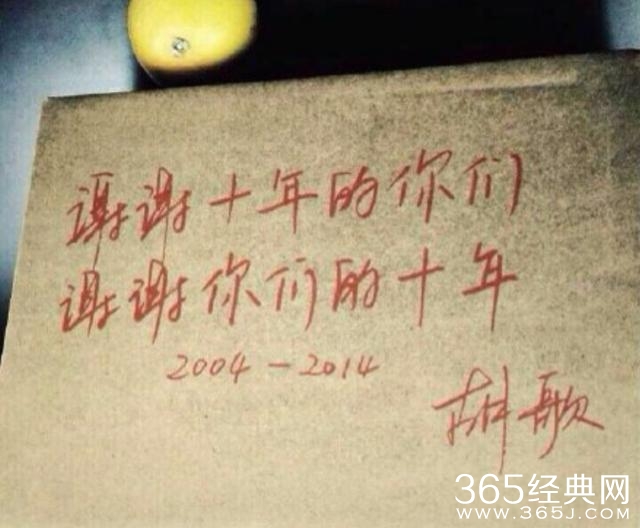 谢谢十年的你们
谢谢你们的十年
2004-2014
胡歌
365经典网
www.365j.com